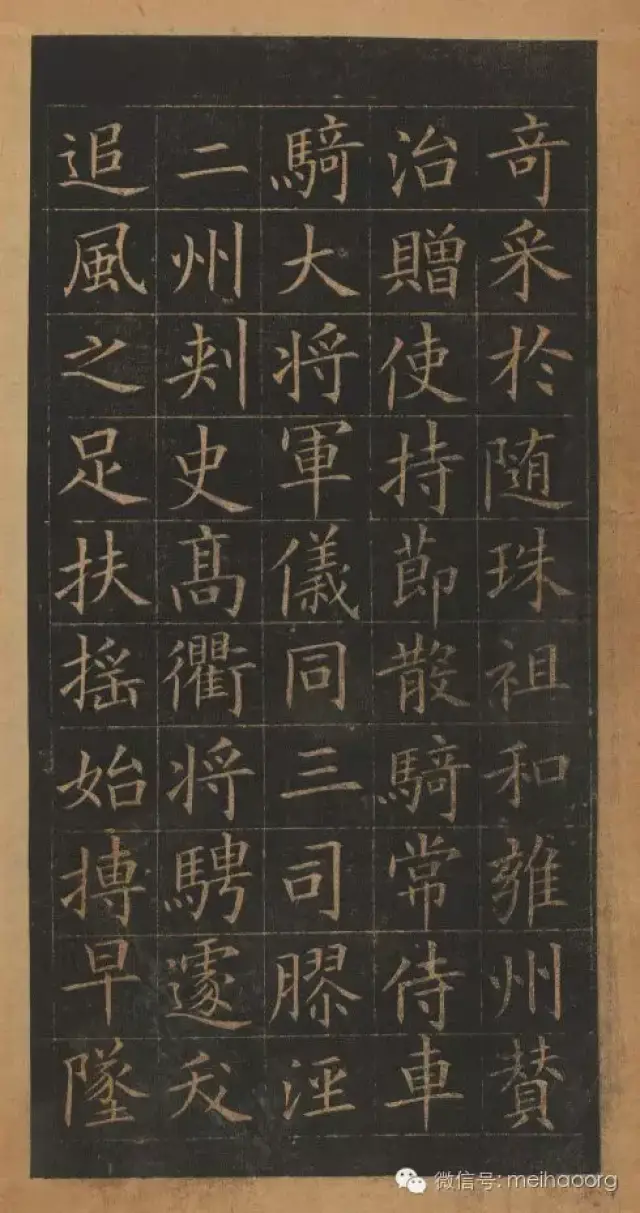 奇采於随珠祖和雍州贊
治贈使持節散騎常侍車
騎大将軍儀同三司膠涇
二州刺史髙衢将騁遽夭
追風之足扶摇始摶早墜
微信号: meihaoorg